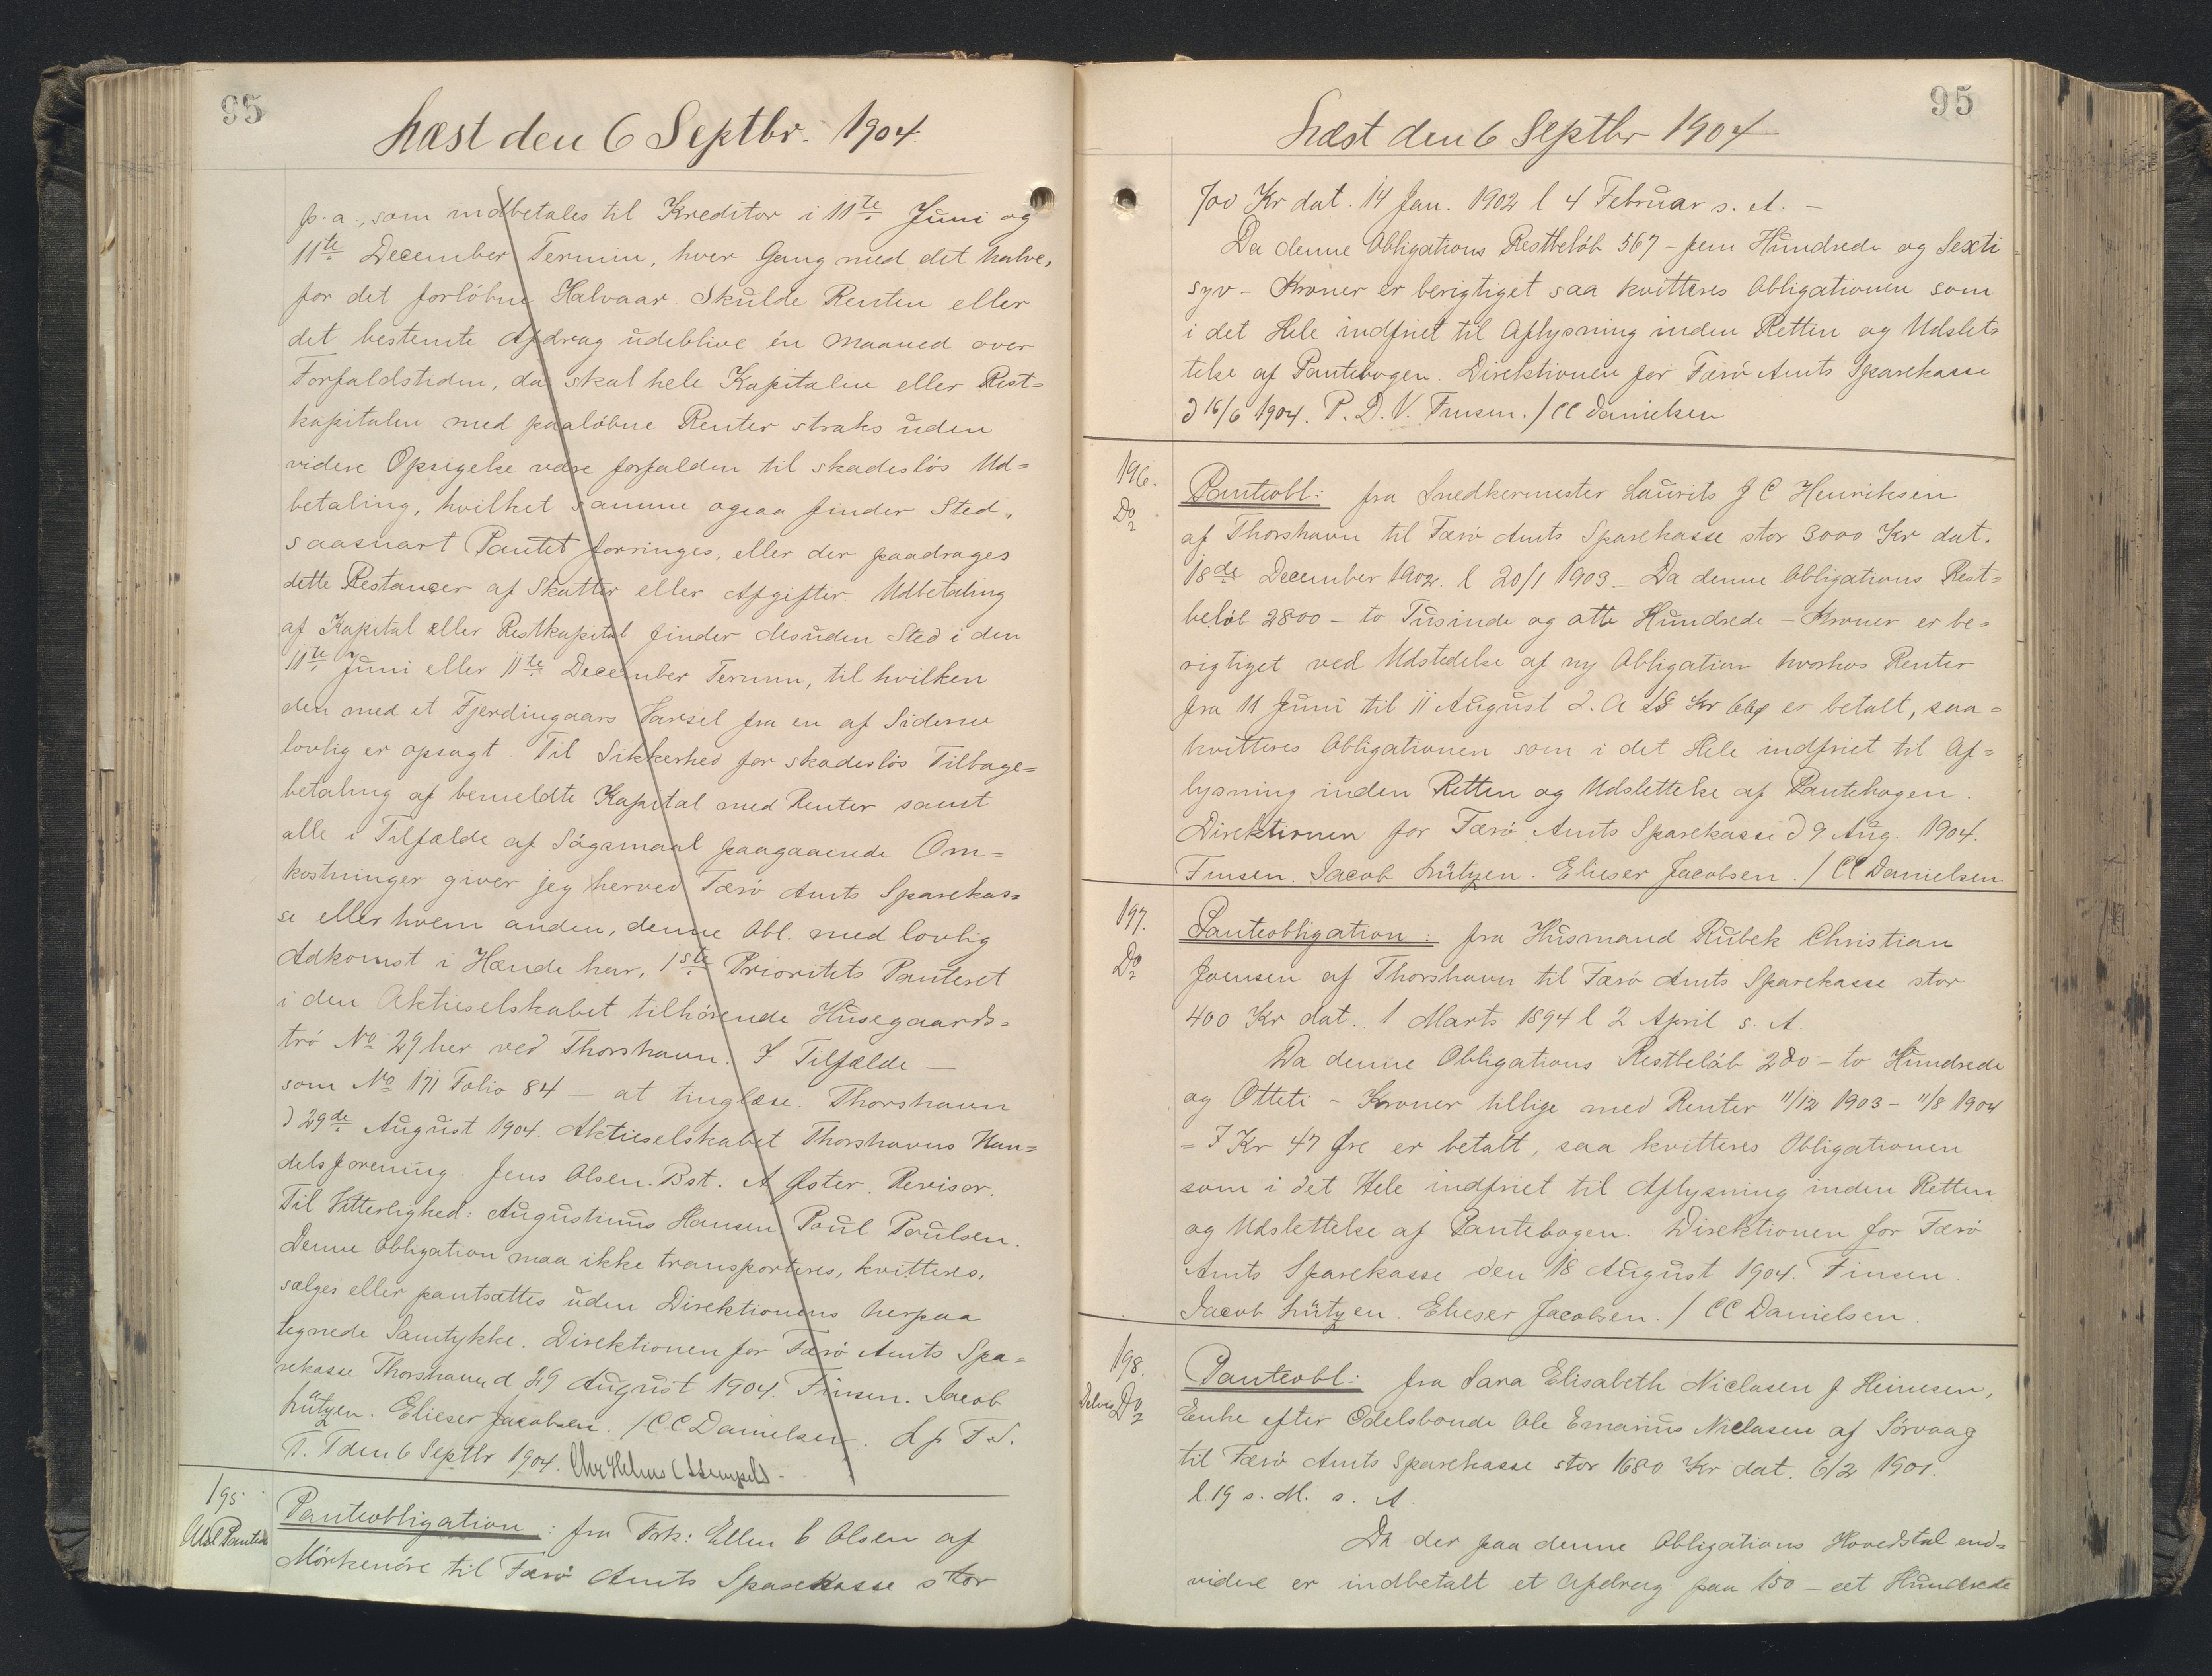 95
Læst den 6 Septbr. 1904.
p.a., som indbetales til Kreditor i 11te Juni og
11te December Termin, hver Gang med det halve,
for det forløbne Halvaar. Skulde Renten eller
det bestemte Afdrag udeblive én Maaned over
Forfaldstiden, da skal hele Kapitalen eller Rest=
kapitalen med paaløbne Renter straks uden
videre Opsigelse være forfalden til skadesløs Ud=
betaling, hvilket samme ogsaa finder Sted,
saasnart Pantet forringes, eller der paadrages
dette Restancer af Skatter eller Afgifter. Udbetaling
af Kapital eller Restkapital finder desuden Sted i den
11te Juni eller 11te December Termin, til hvilken
den med et Fjerdingaars Varsel fra en af Siderne
lovlig er opsagt. Til Sikkerhed for skadesløs Tilbage=
betaling af bemeldte Kapital med Renter samt
alle i Tilfælde af Søgsmaal paagaaende Om=
kostninger giver jeg herved Færø Amts Sparekas=
se eller hvem anden, denne Obl. med lovlig
Adkomst i Hænde har, 1ste Prioritets Panteret
i den Aktieselskabet tilhørende Husegaards=
trø No 29 her ved Thorshavn. I Tilfælde —
som No 171 Folio 84 — at tinglæse. Thorshavn
d 29de August 1904. Aktieselskabet Thorshavns Han=
delsforening. Jens Olsen. Bst. A Øster. Revisor.
Til Vitterlighed: Augustinus Hansen Poul Poulsen.
Denne Obligation maa ikke transporteres, kvitteres,
sælges eller pantsættes uden Direktionens herpaa
tegnede Samtykke. Direktionen for Færø Amts Spa=
rekasse Thorshavn d 29 August 1904. Finsen. Jacob
Lützen. Elieser Jacobsen. / C.C Danielsen. L p F.S.
T. T den 6 Septbr 1904. Chr Helms (Stempel) -
195.
Udsl Panteb
Panteobligation: fra Frk: Ellen C Olsen af
Mörkenöre til Færø Amts Sparekasse stor
95
Læst den 6 Septbr 1904
700 Kr dat. 14 Jan. 1902 l 4 Februar s. A. —
Da denne Obligations Restbeløb 567 – fem Hundrede og Sexti
syv – Kroner er berigtiget saa kvitteres Obligationen som
i det Hele indfriet til Aflysning inden Retten og Udslet=
telse af Pantebogen. Direktionen for Færø Amts Sparekasse
d 16/6 1904. P. D. V. Finsen. / CC Danielsen
196.
Do
Panteobl: fra Snedkermester Laurits J C Henriksen
af Thorshavn til Færø Amts Sparekasse stor 3000 Kr dat.
18de December 1902. l 20/1 1903 – Da denne Obligations Rest=
beløb 2800 – to Tusinde og otte Hundrede – Kroner er be=
rigtiget ved Udstedelse af ny Obligation hvorhos Renter
fra 11 Juni til 11 August d. A 18 Kr 66ø er betalt, saa=
kvitteres Obligationen som i det Hele indfriet til Af=
lysning inden Retten og Udslettelse af Pantebogen.
Direktionen for Færø Amts Sparekasse d 9 Aug. 1904.
Finsen. Jacob Lützen. Elieser Jacobsen. / CC Danielsen.
197.
Do
Panteobligation: fra Husmand Rubek Christian
Joensen af Thorshavn til Færø Amts Sparekasse stor
400 Kr dat. 1 Marts 1894 l 2 April s. A.
Da denne Obligations Restbeløb 280 – to Hundrede
og Otteti – Kroner tillige med Renter 11/12 1903 – 11/8 1904
= 7 Kr 47 Øre er betalt, saa kvitteres Obligationen
som i det Hele indfriet til Aflysning inden Retten
og Udslettelse af Pantebogen. Direktionen for Færø
Amts Sparekasse den 18 August 1904. Finsen.
Jacob Lützen. Elieser Jacobsen. / CC Danielsen.
198.
Delvis Do
Panteobl: fra Sara Elisabeth Niclasen f Heinesen,
Enke efter Odelsbonde Ole Emarius Niclasen af Sørvaag
til Færø Amts Sparekasse stor 1680 Kr dat. 6/2 1901.
l. 19 s. M. s. A.
Da der paa denne Obligations Hovedstol end=
videre er indbetalt et Afdrag paa 150 – eet Hundrede